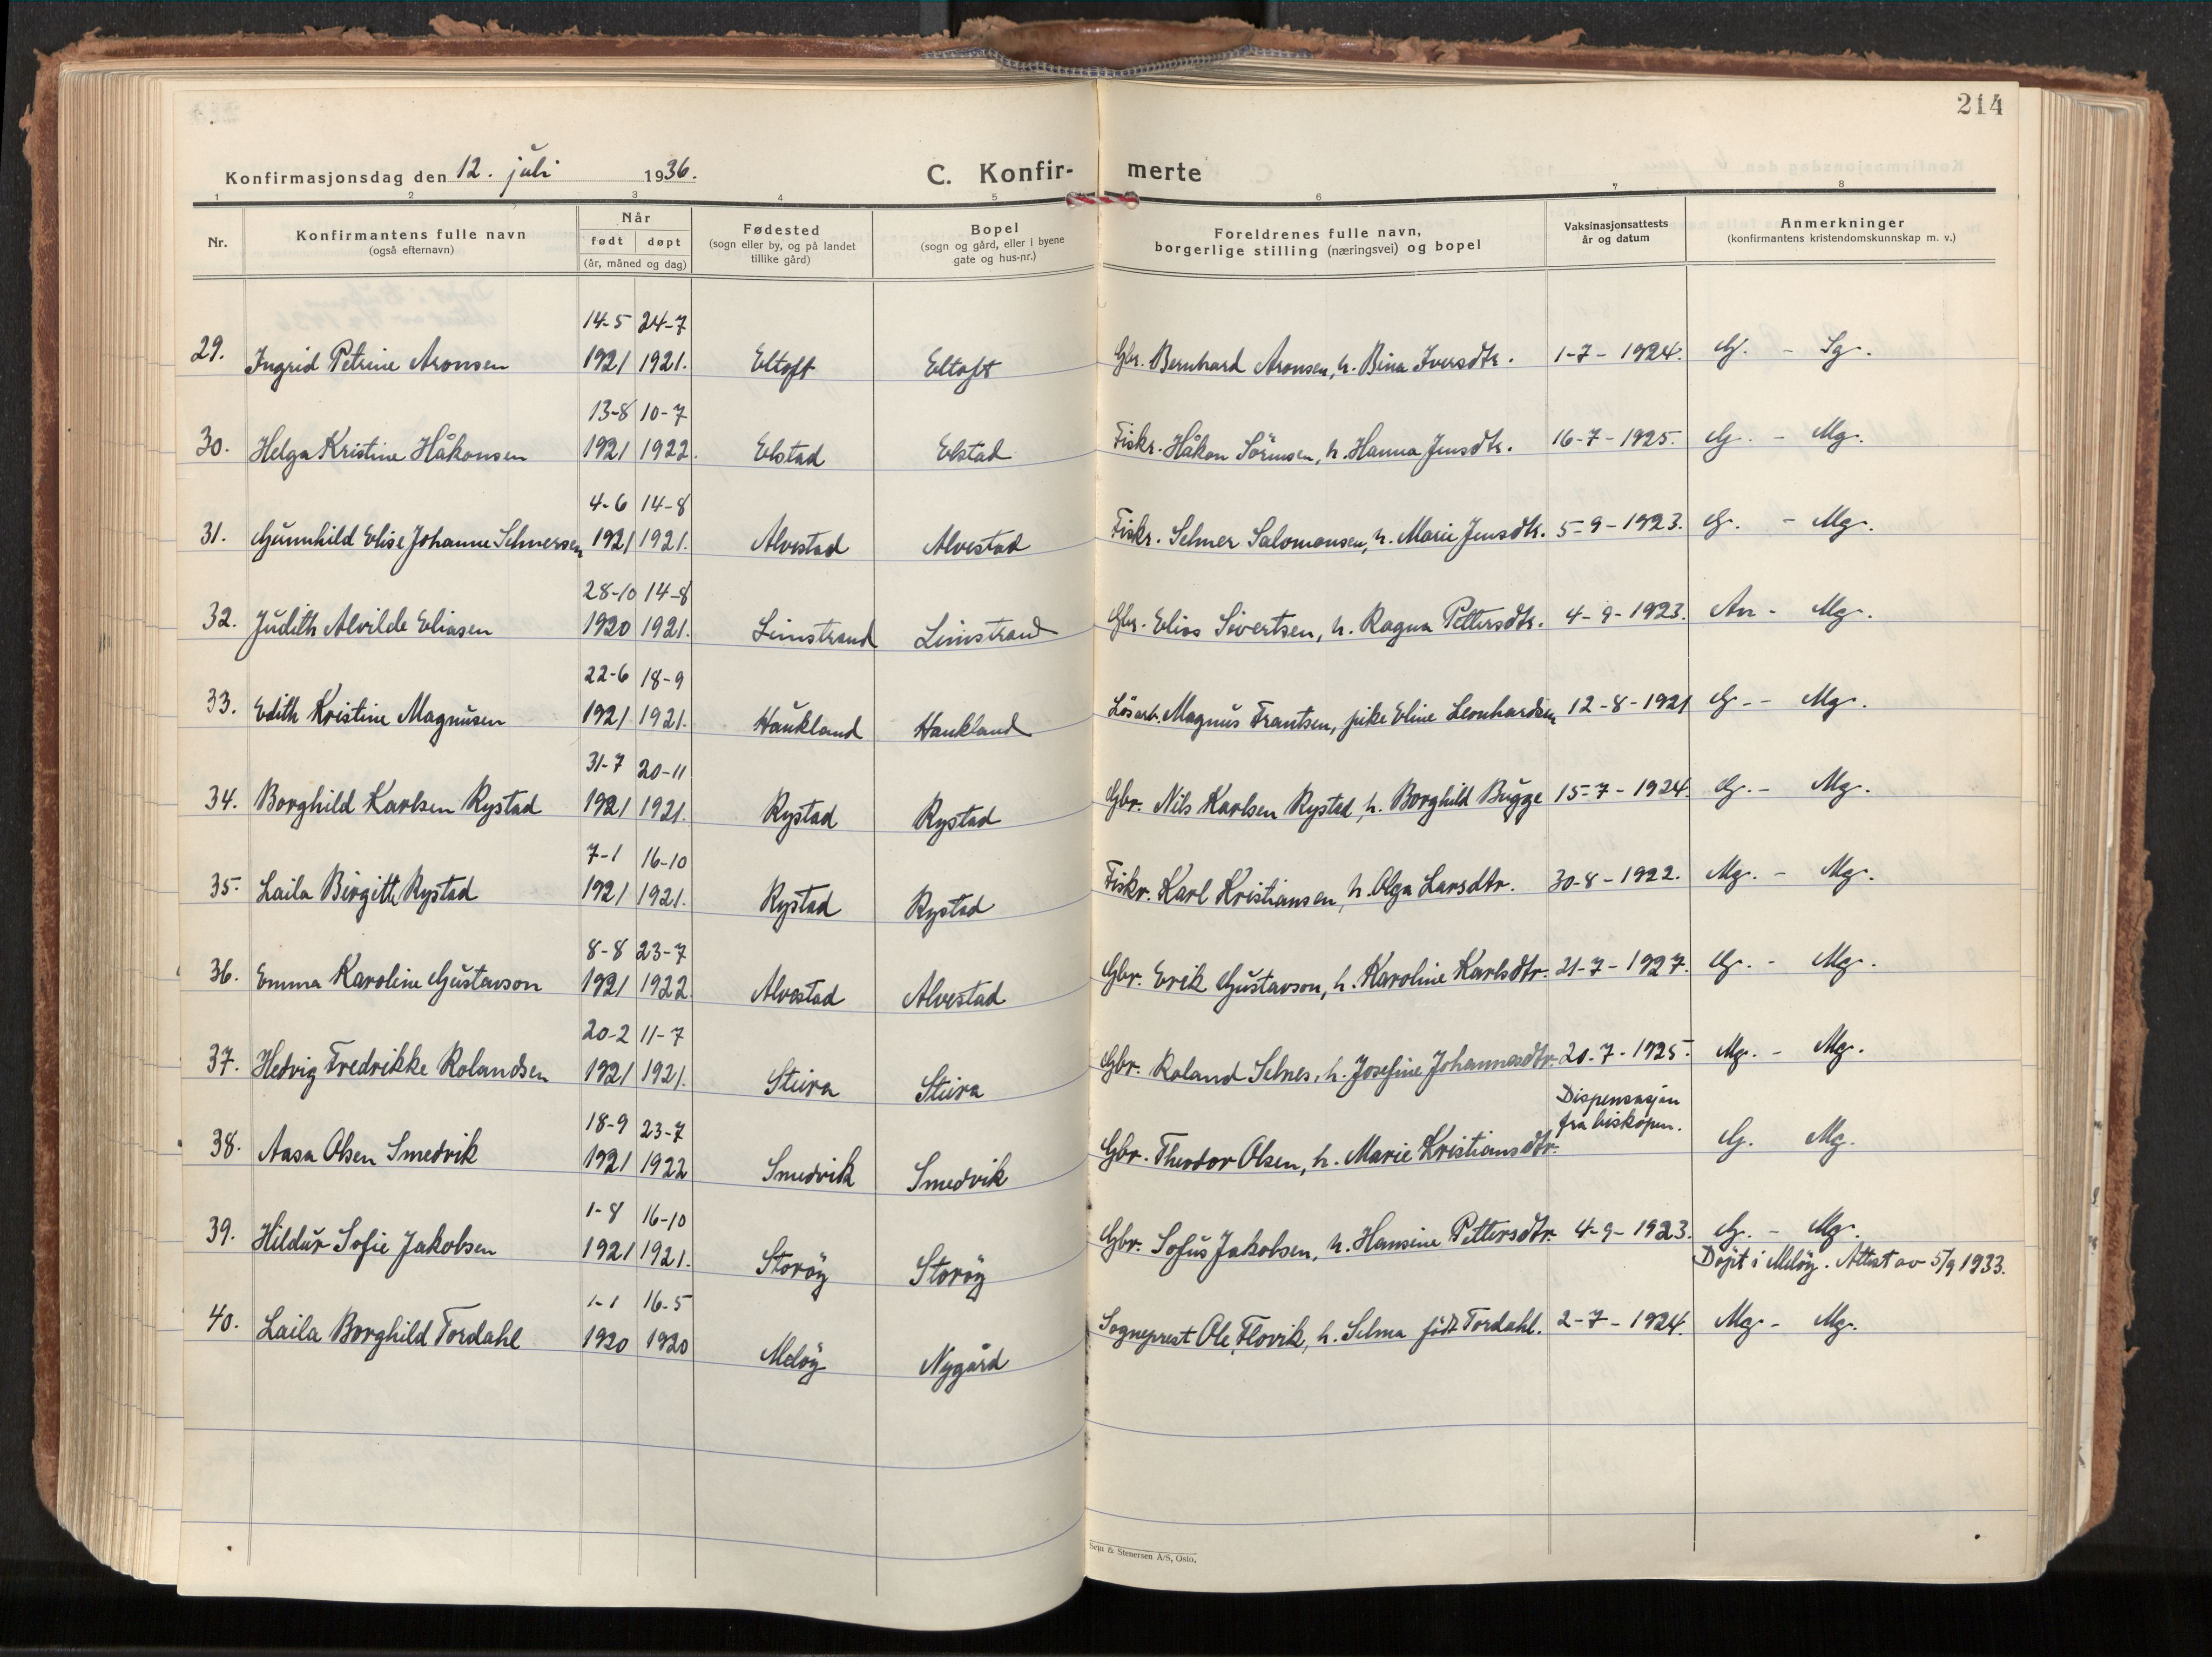 214
Konfirmasjonsdag den 12. juli 1936.
C. Konfir- merte
1 2 3 4 5 6 7 8
Nr. Konfirmantens fulle navn (også efternavn) Når født døpt (år, måned og dag) Fødested (sogn eller by, og på landet tillike gård) Bopel (sogn og gård, eller i byene gate og hus-nr.) Foreldrenes fulle navn, borgerlige stilling (næringsvei) og bopel Vaksinasjonsattests år og datum Anmerkninger (konfirmantens kristendomskunnskap m. v.)
14-5 24-7
29. Ingrid Petrine Aronsen 1921 1921. Eltoft Eltoft Gbr. Bernhard Aronsen, h. Bina Iversdtr. 1-7-1924. G. - Sg.
13-8 10-7
30. Helga Kristine Håkonsen 1921 1922. Elstad Elstad Fiskr. Håkon Sörensen, h. Hanna Jensdtr. 16-7-1925. G. - Mg.
4-6 14-8
31. Gunnhild Elise Johanne Selmersen 1921 1921. Alvestad Alvestad Fiskr. Selmer Salomonsen, h. Marie Jensdtr. 5-9-1923. G. - Mg.
28-10 14-8
32. Judith Alvilde Eliasen 1920 1921. Limstrand Limstrand Gbr. Elias Sivertsen, h. Ragna Pettersdtr. 4-9-1923. An - Mg.
22-6 18-9
33. Edith Kristine Magnusen 1921 1921. Haukland Haukland Lösarb. Magnus Frantsen, pike Eline Leonhardsen 12-8-1921 G. - Mg.
31-7 20-11
34. Borghild Karlsen Rystad 1921 1921. Rystad Rystad Gbr. Nils Karlsen Rystad, h. Borghild Bugge 15-7-1924. G. - Mg.
7-1 16-10
35. Laila Birgitte Rystad 1921 1921. Rystad Rystad Fiskr. Karl Kristiansen, h. Olga Larsdtr. 30-8-1922. Mg. - Mg.
8-8 23-7
36. Emma Karoline Gustavson 1921 1922 Alvestad Alvestad Gbr. Erik Gustavson, h. Karoline Karlsdtr. 21-7-1927. G. - Mg.
20-2 11-7
37. Hedvig Fredrikke Rolandsen 1921 1921. Steira Steira Gbr. Roland Selnes, h. Josefine Johannesdtr. 20-7-1925. Mg. - Mg.
18-9 23-7 Dispensasjon
fra biskopen.
38. Aasa Olsen Smedvik 1921 1922 Smedvik Smedvik Gbr. Theodor Olsen, h. Marie Kristiansdtr. G. Mg.
1-8 16-10
39. Hildur Sofie Jakobsen 1921 1921. Storöy Storöy Gbr. Sofus Jakobsen, h. Hansine Pettersdtr. 4-9-1923. G. - Mg.
Döpt i Melöy. Attest av 5/9 1933.
1-1 16-5
40. Laila Borghild Tordahl 1920 1920 Melöy Nygård Sogneprest Ole Flovik, h. Selma födt Tordahl. 2-7-1924. Mg - Mg.
Sem & Stenersen A/S, Oslo.